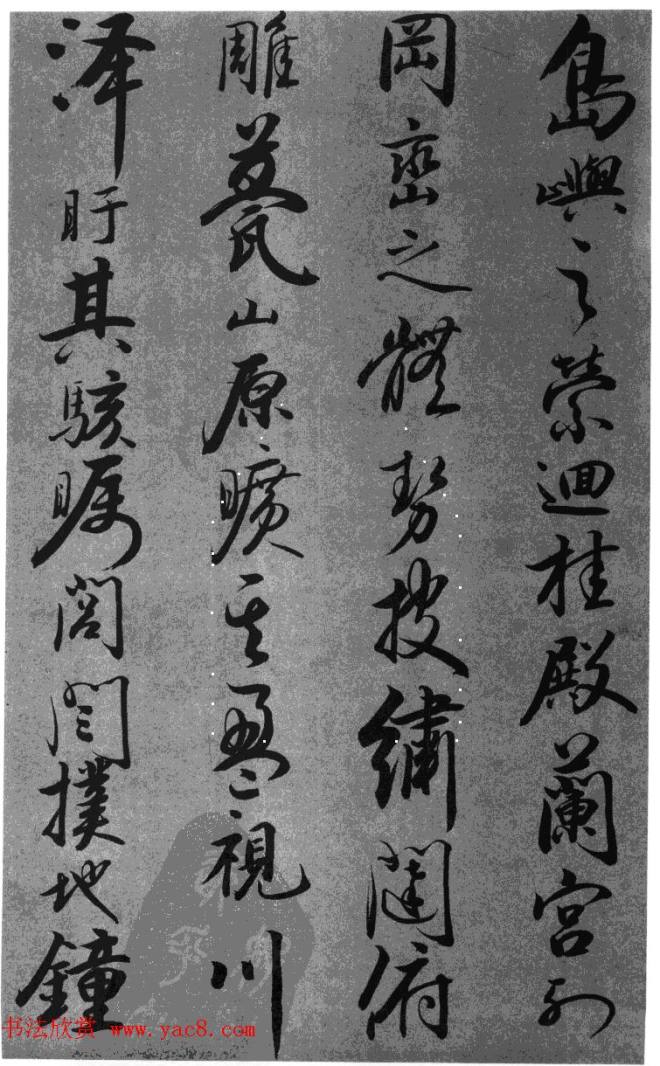 島嶼之萦迴桂殿蘭宮列
岡巒之體勢披繡闥俯
雕甍山原曠其盈視川
泽盱其駭瞩閭閻撲地鐘
书法欣赏 www.yac8.com